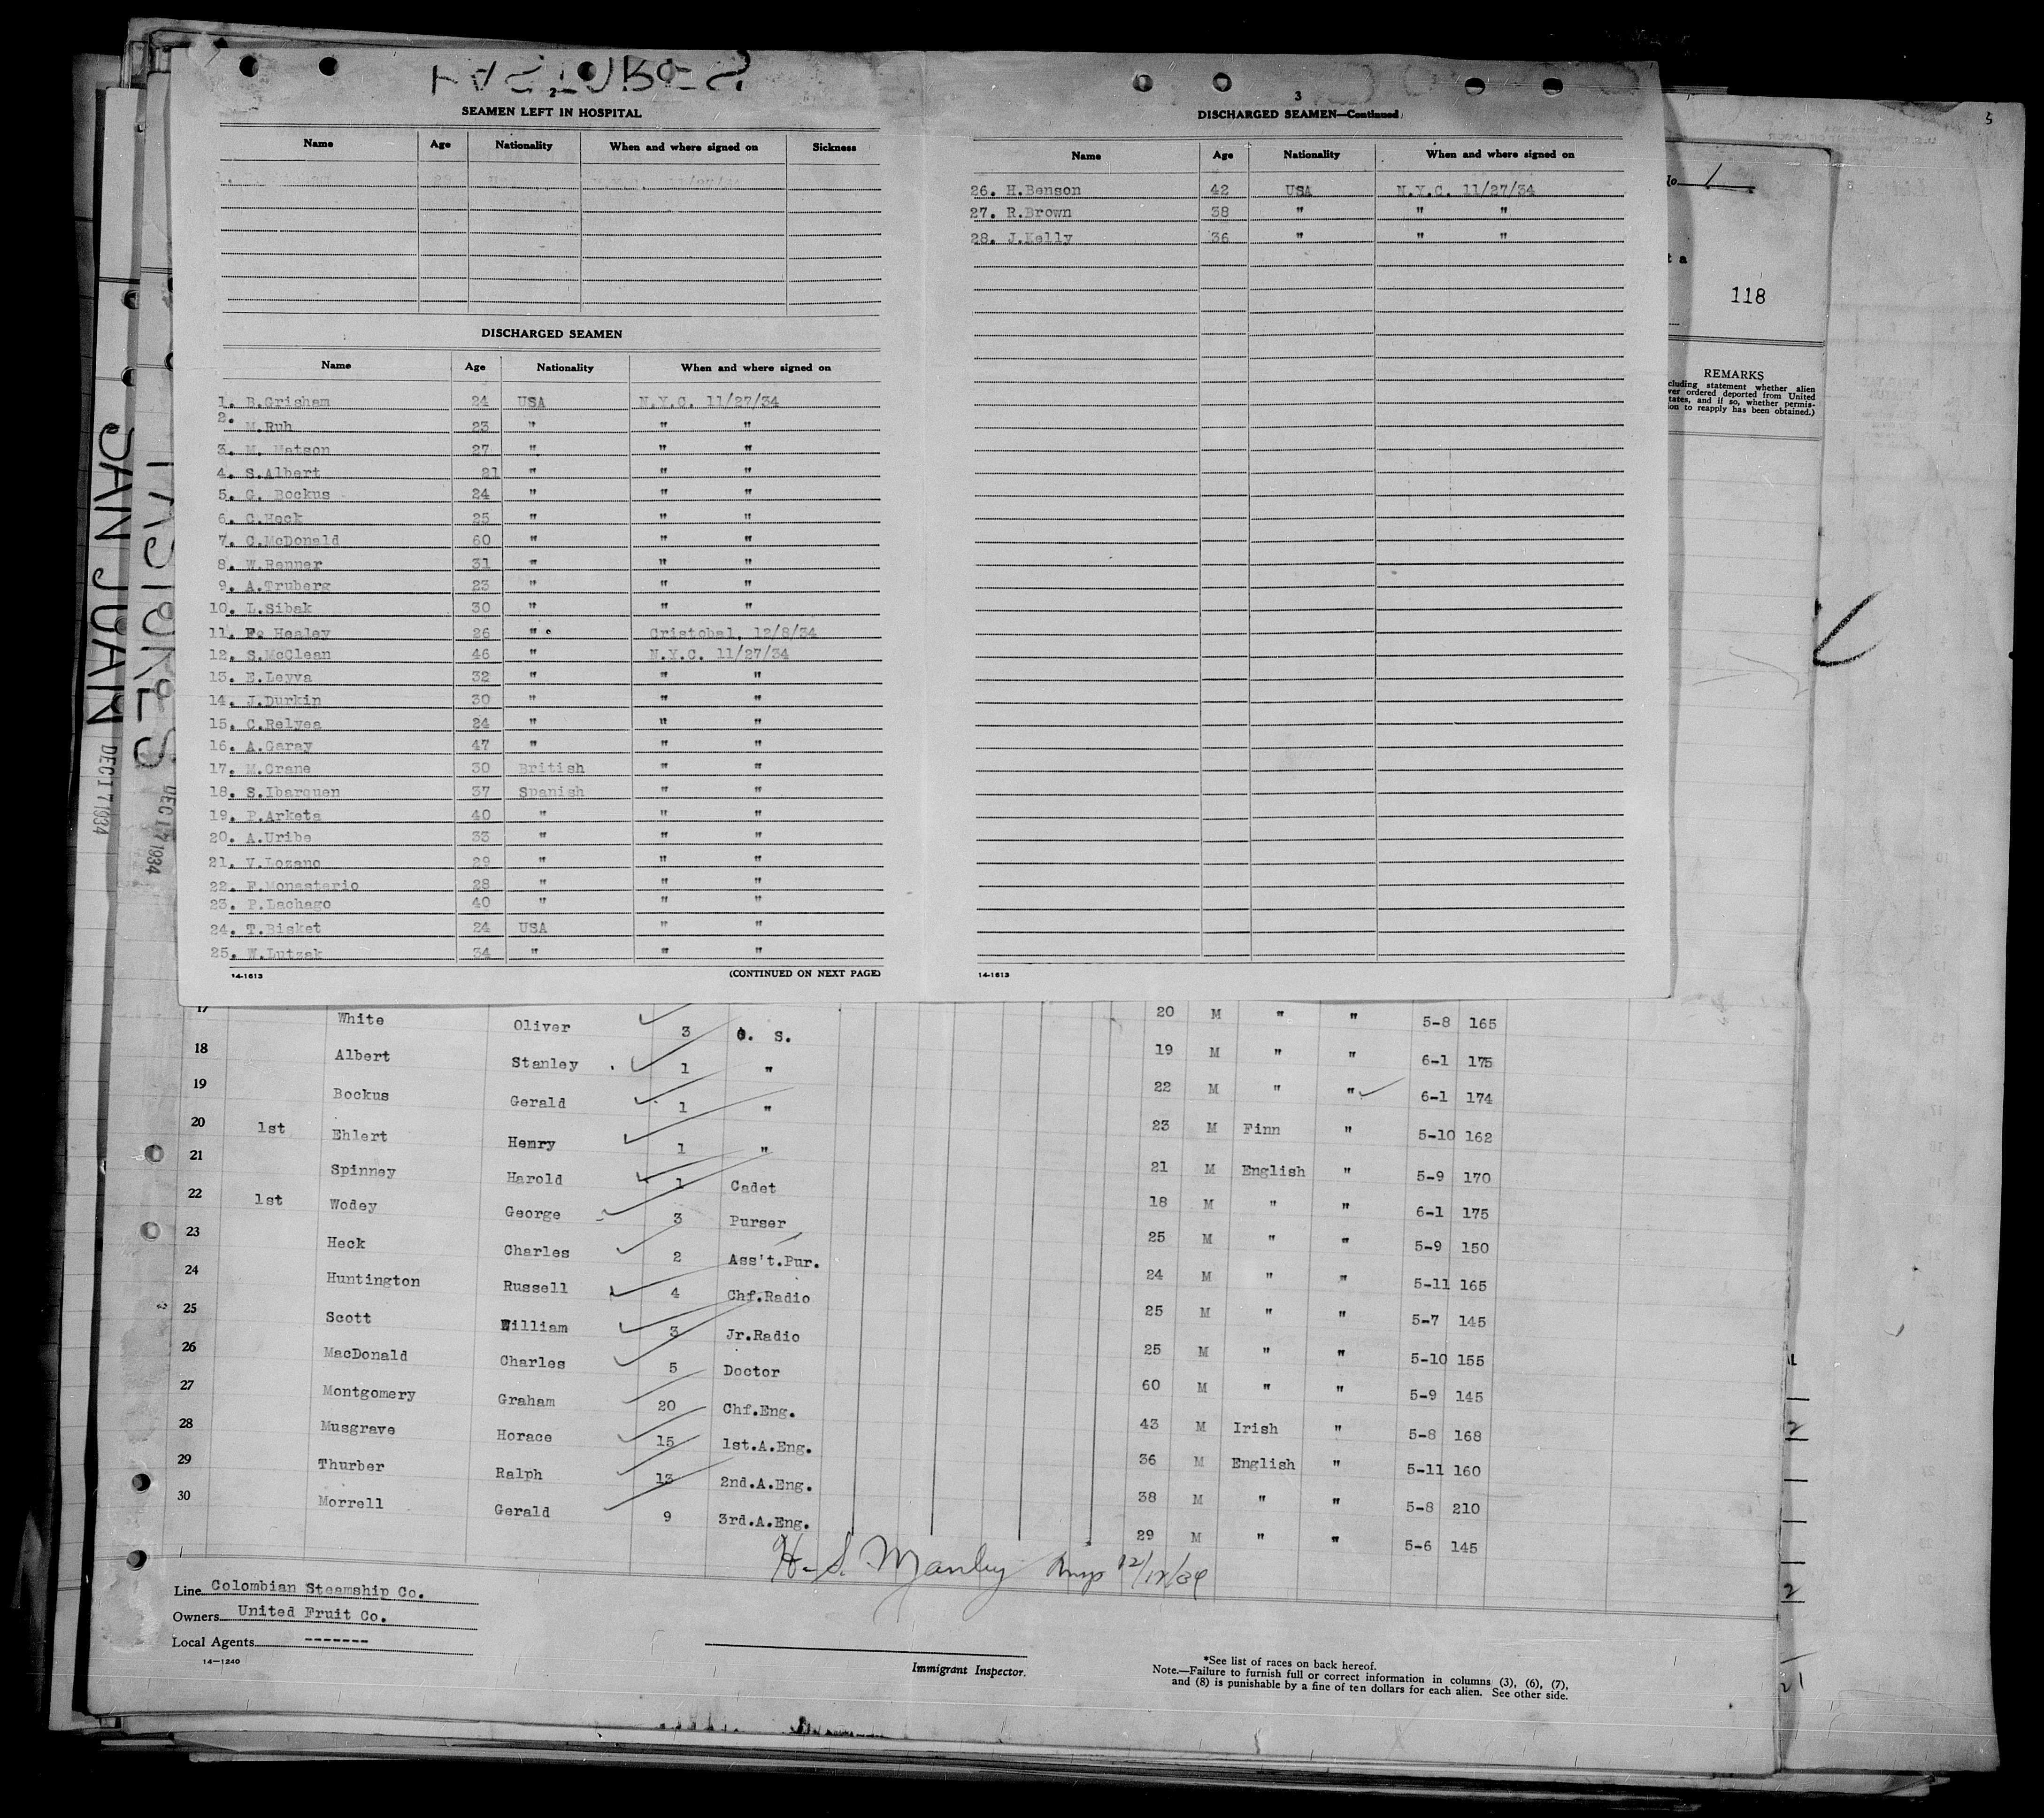 2
SEAMEN LEFT IN HOSPITAL
Name Age Nationality When and where signed on Sickness
1.
DISCHARGED SEAMEN
Name Age Nationality When and where signed on
1. B.Grisham 24 USA N.Y.C. 11/27/34
2. M.Ruh 23 " " "
3. M. Matson 27 " " "
4. S.Albert 21 " " "
5. G. Bockus 24 " " "
6. C.Heck 25 " " "
7. C.McDonald 60 " " "
8. W.Renner 31 " " "
9. A.Truberg 23 " " "
10. L.Sibak 30 " " "
11. F. Healey 26 " Cristobal, 12/8/34
12. S.McClean 46 " N.Y.C. 11/27/34
13. E.Leyva 32 " " "
14. J.Durkin 30 " " "
15. C.Relyea 24 " " "
16. A.Garay 47 " " "
17. M.Crane 30 British " "
18. S.Ibarquen 37 Spanish " "
19. P.Arketa 40 " " "
20. A.Uribe 33 " " "
21. V.Lozano 29 " " "
22. F.Monastario 28 " " "
23. P.Lachago 40 " " "
24. T.Bisket 24 USA " "
25. W.Lutzak 34 " " "
14-1613 (CONTINUED ON NEXT PAGE)
3
DISCHARGED SEAMEN—Continued
Name Age Nationality When and where signed on
26. H.Benson 42 USA N.Y.C. 11/27/34
27. R.Brown 38 " " "
28. J.Kelly 36 " " "
14-1613
SAN JUAN DEC 17 1934
PASTORES DEC 17 1934
5
No. 1
t a
118
REMARKS
cluding statement whether alien
ver ordered deported from United
tates, and if so, whether permis-
on to reapply has been obtained.)
17 White Oliver 3 O. S. 20 M " " 5-8 165
18 Albert Stanley 1 " 19 M " " 6-1 175
19 Bockus Gerald 1 " 22 M " " 6-1 174
20 1st Ehlert Henry 1 " 23 M Finn " 5-10 162
21 Spinney Harold 1 Cadet 21 M English " 5-9 170
22 1st Wodey George 3 Purser 18 M " " 6-1 175
23 Heck Charles 2 Ass't.Pur. 25 M " " 5-9 150
24 Huntington Russell 4 Chf.Radio 24 M " " 5-11 165
25 Scott William 3 Jr.Radio 25 M " " 5-7 145
26 MacDonald Charles 5 Doctor 25 M " " 5-10 155
27 Montgomery Graham 20 Chf.Eng. 60 M " " 5-9 145
28 Musgrave Horace 15 1st.A.Eng. 43 M Irish " 5-8 168
29 Thurber Ralph 13 2nd.A.Eng. 36 M English " 5-11 160
30 Morrell Gerald 9 3rd.A.Eng. 38 M " " 5-8 210
29 M " " 5-6 145
H. S. Manley Insp 12/17/34
Line Colombian Steamship Co.
Owners United Fruit Co.
Local Agents -------
14—1240
Immigrant Inspector.
*See list of races on back hereof.
Note.—Failure to furnish full or correct information in columns (3), (6), (7),
and (8) is punishable by a fine of ten dollars for each alien. See other side.